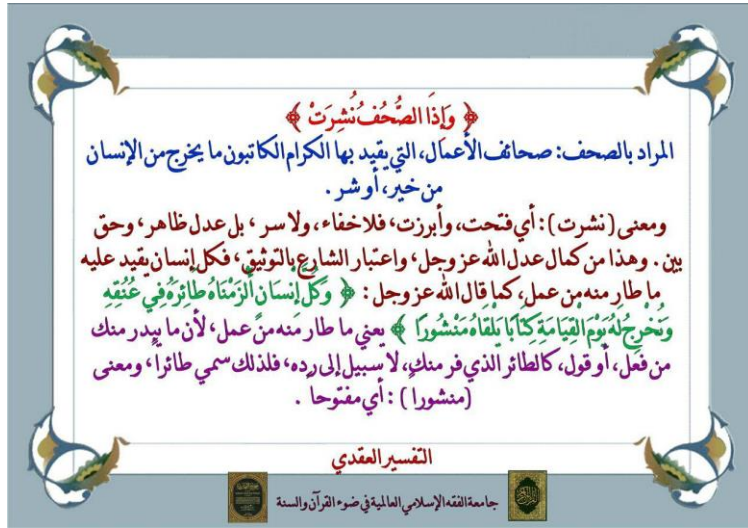 ﴿ وَإِذَا الصُّحُفُ نُشِرَتْ ﴾
المراد بالصحف: صحائف الأعمال، التي يقيد بها الكرام الكاتبون ما يخرج من الإنسان
من خير، أو شر .
ومعنى ( نشرت ) : أي فتحت، وأبرزت، فلا خفاء، ولا سر ، بل عدل ظاهر، وحق
بين . وهذا من كمال عدل الله عز وجل، واعتبار الشارع بالتوثيق، فكل إنسان يقيد عليه
ما طار منه من عمل، كما قال الله عز وجل : ﴿ وَكُلَّ إِنسَانٍ أَلْزَمْنَاهُ طَائِرَهُ فِي عُنُقِهِ
وَنُخْرِجُ لَهُ يَوْمَ الْقِيَامَةِ كِتَابًا يَلْقَاهُ مَنْشُورًا ﴾ يعني ما طار منه من عمل، لأن ما يبدر منك
من فعل، أو قول، كالطائر الذي فر منك، لا سبيل إلى رده، فلذلك سمي طائراً، ومعنى
(منشورا ) : أي مفتوحاً .
التفسير العقدي
جامعة الفقه الإسلامي العالمية في ضوء القرآن والسنة